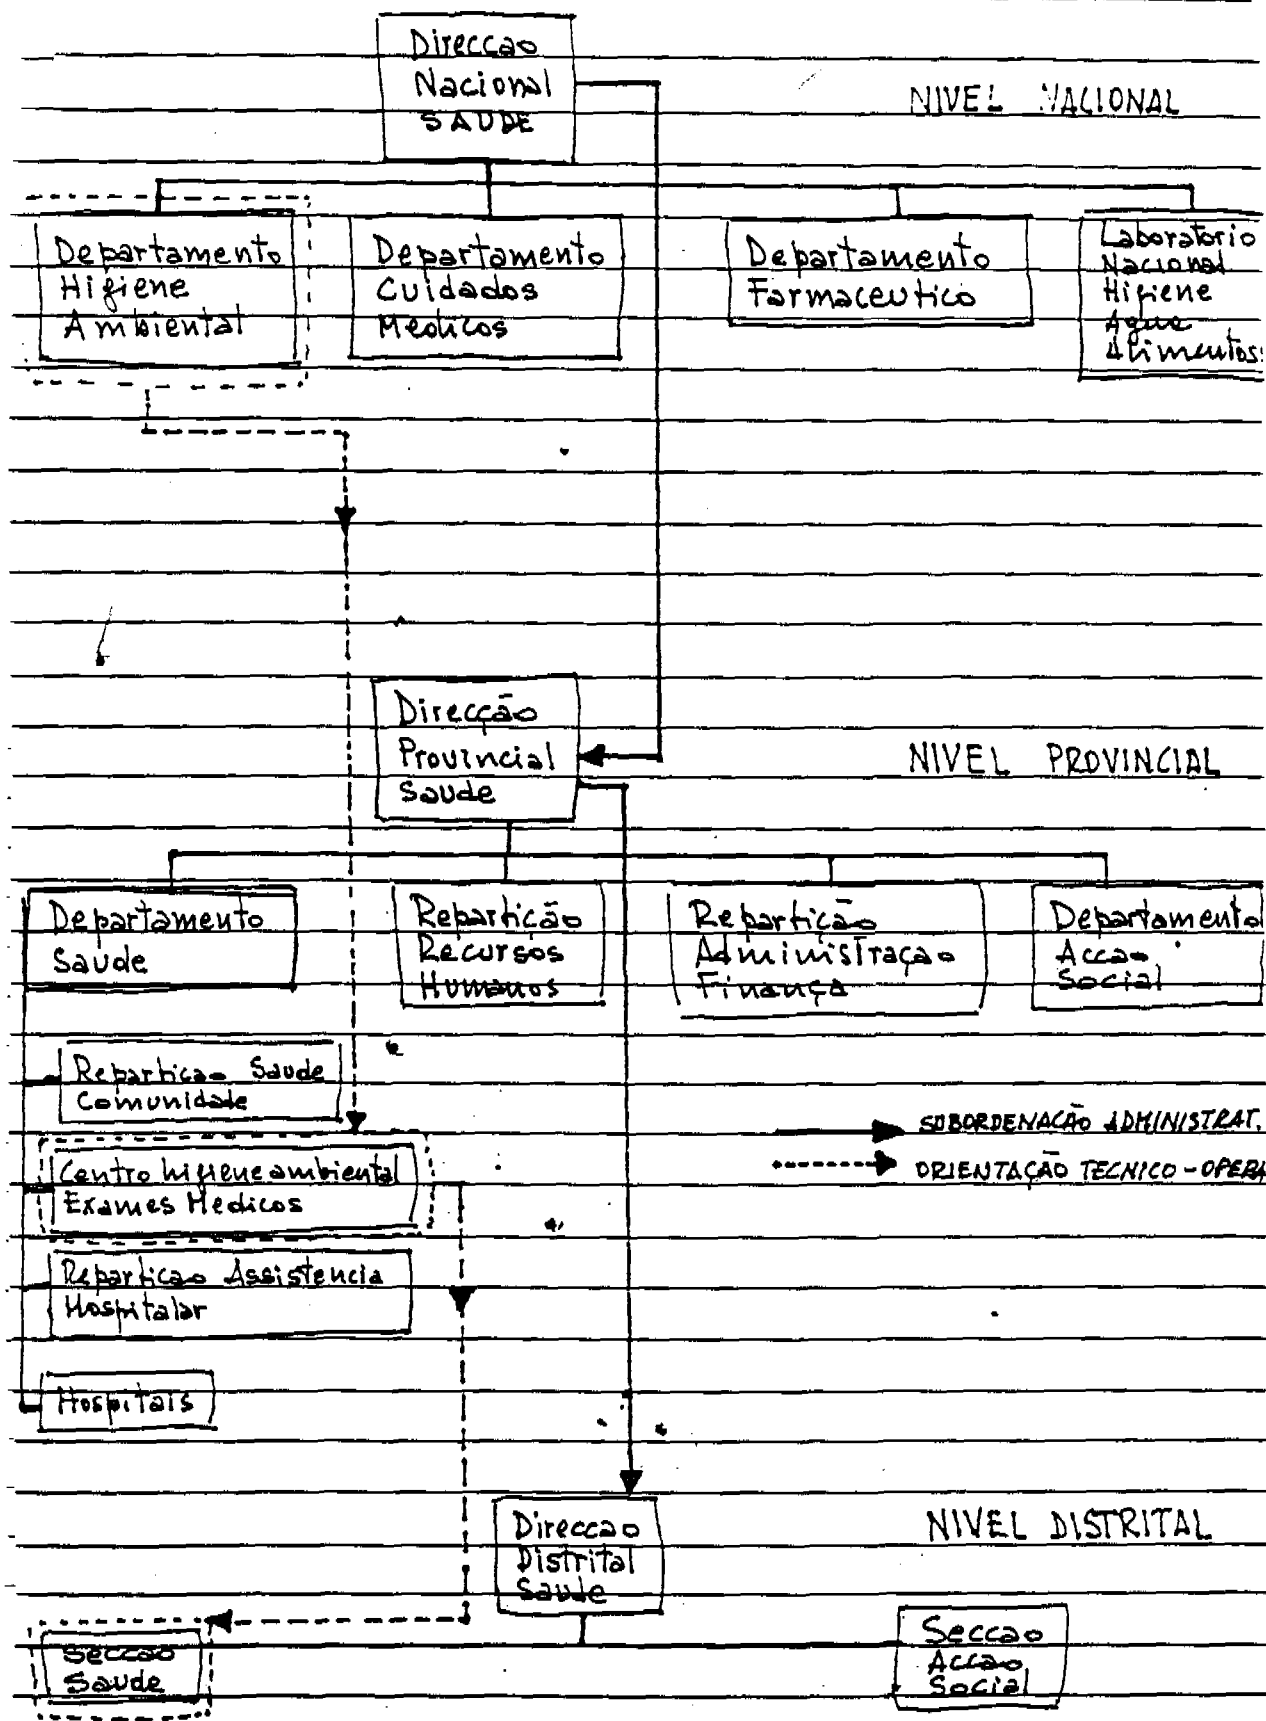 Direccao
Nacional
SAUDE
NIVEL NACIONAL
Departamento
Higiene
Ambiental
Departamento
Cuidados
Medicos
Departamento
Farmaceutico
Laboratorio
Nacional
Higiene
Agua
Alimentos
Direcção
Provincial
Saude
NIVEL PROVINCIAL
Departamento
Saude
Repartição
Recursos
Humanos
Repartição
Administração
Finança
Departamento
Accao
Social
Reparticao Saude
Comunidade
Centro higiene ambiental
Exames Medicos
Reparticao Assistencia
Hospitalar
Hospitais
SUBORDENAÇÃO ADMINISTRAT.
ORIENTAÇÃO TECNICO-OPERA
Direccao
Distrital
Saude
NIVEL DISTRITAL
Seccao
Saude
Seccao
Accao
Social